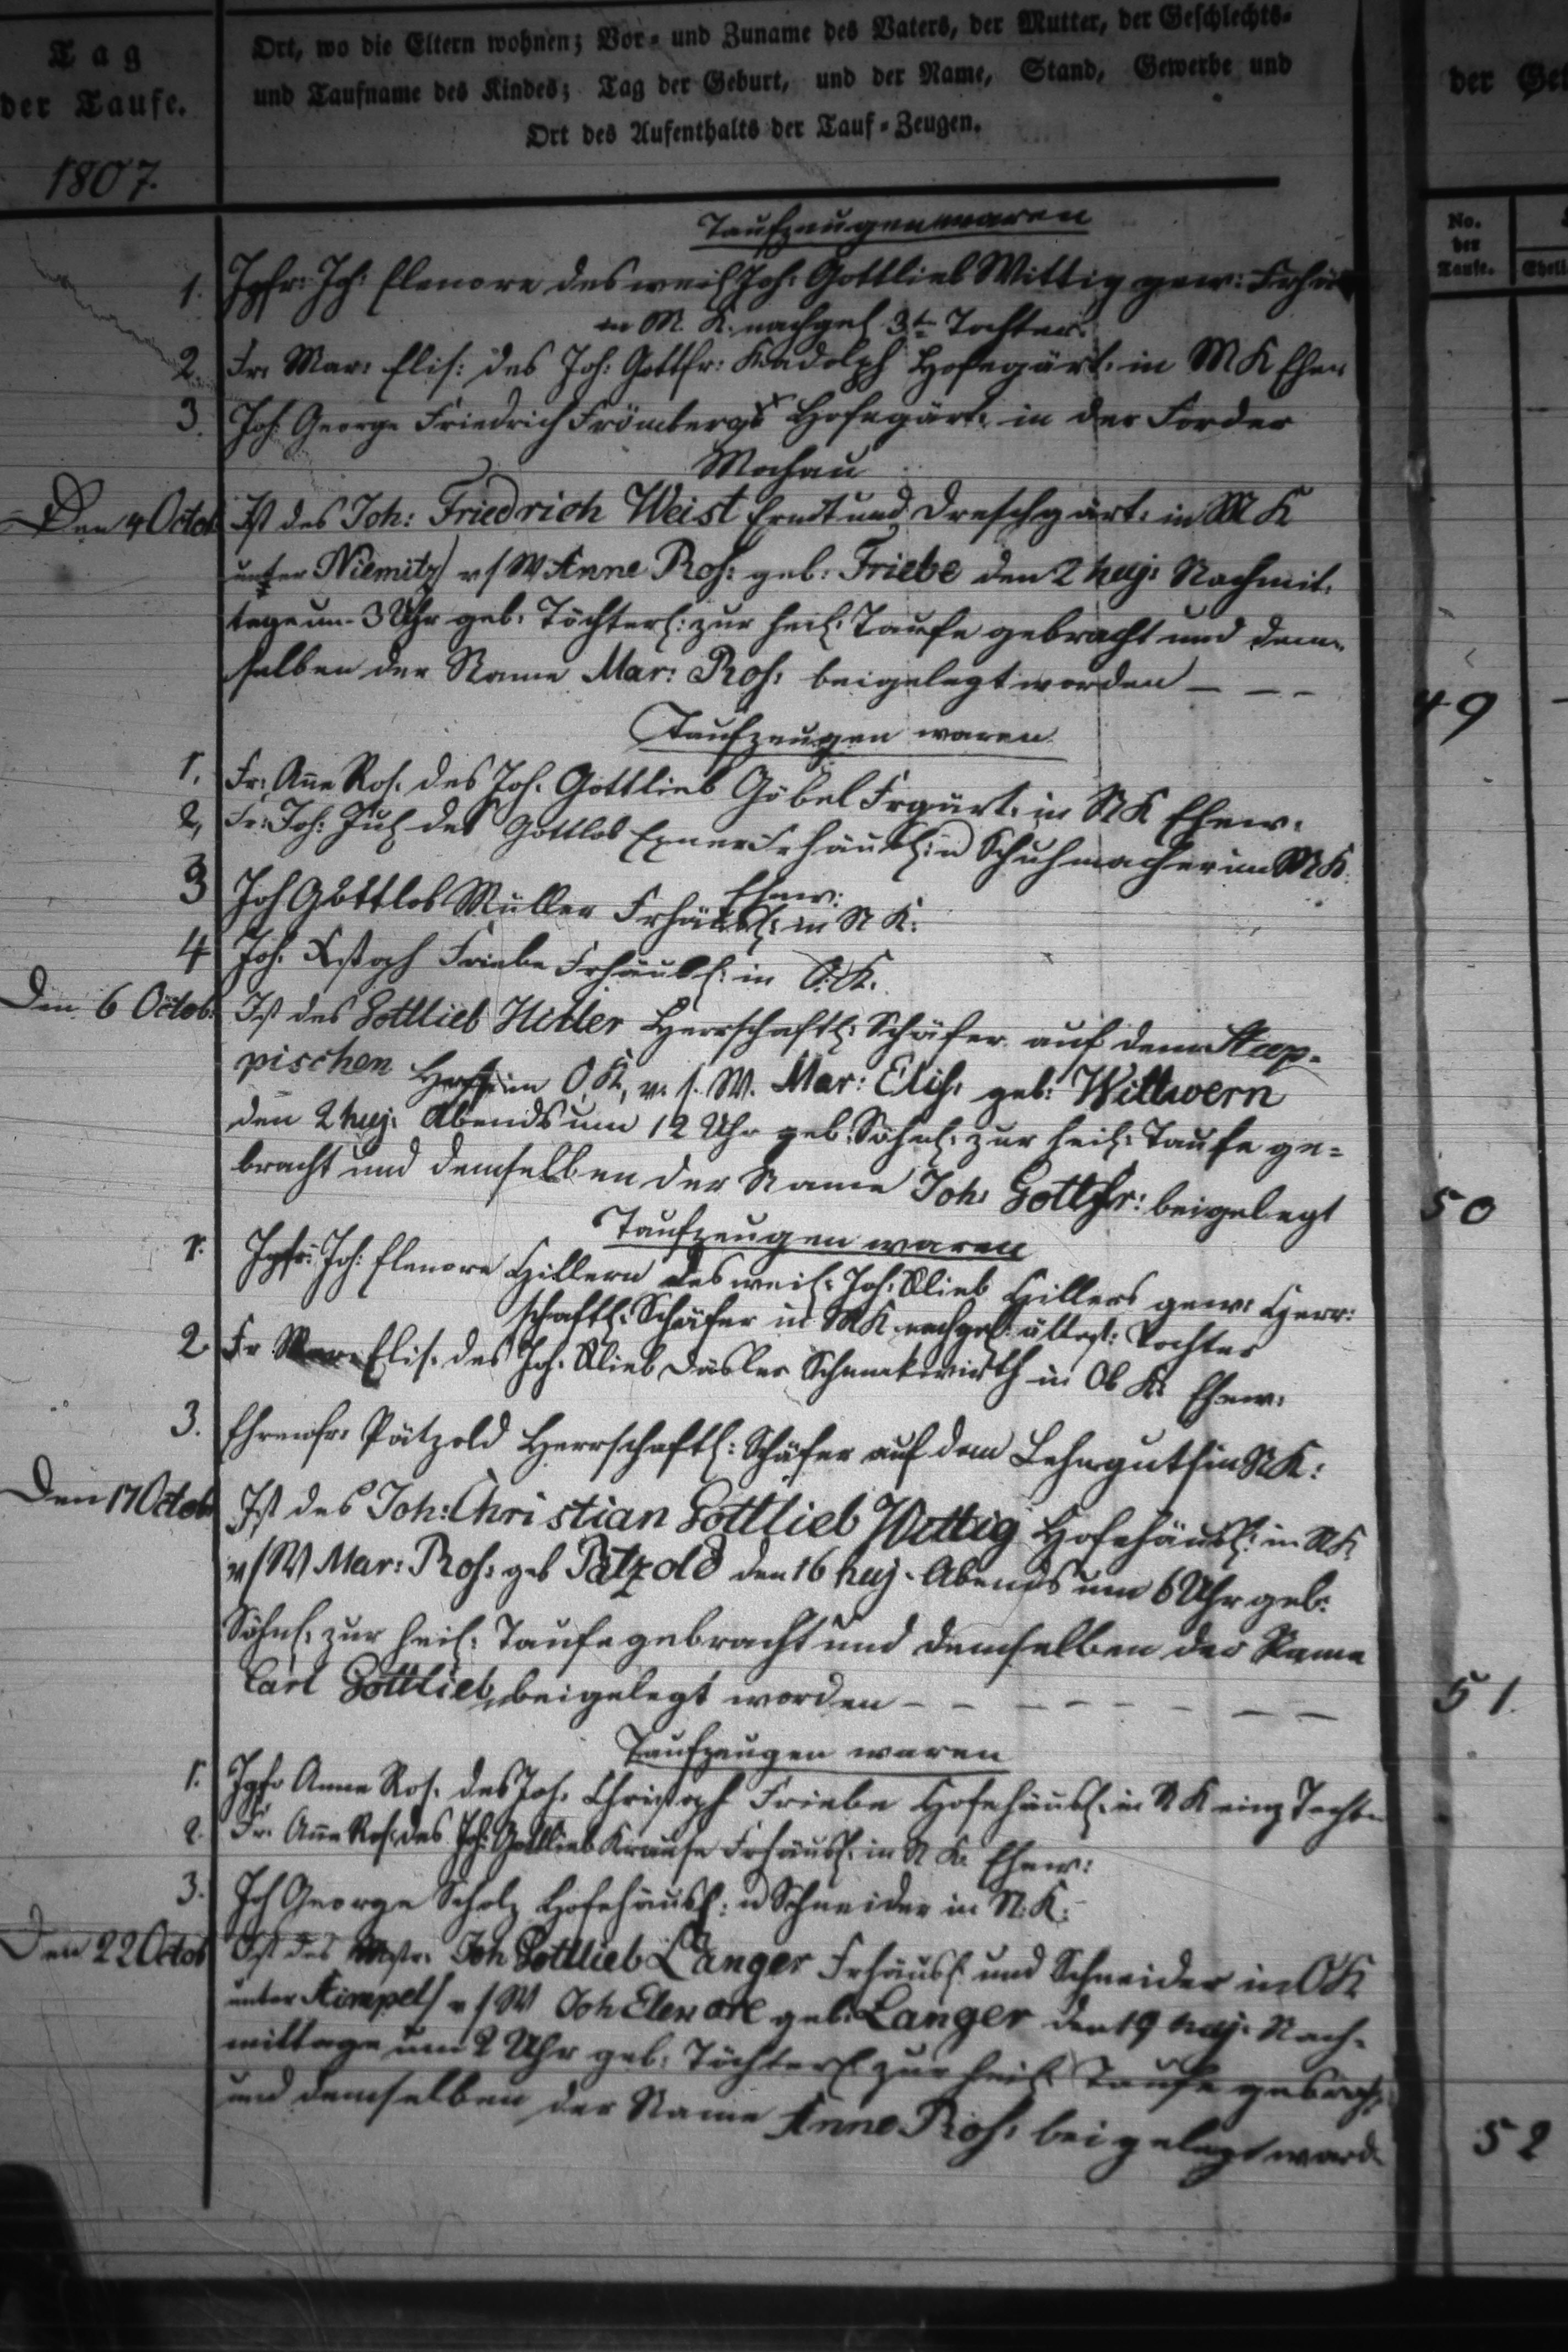 Tag
der Taufe.
Ort, wo die Eltern wohnen; Vor- und Zuname des Vaters, der Mutter, der Geschlechts-
und Taufname des Kindes; Tag der Geburt, und der Name, Stand, Gewerbe und
Ort des Aufenthalts der Tauf-Zeugen.
1807.
Taufzeugen waren
1. Jgfr: Joh: Elenore des weil Joh: Gottlieb Wittig gew: Frhäu
in M. K. nachgel 3te Tochter.
2. Fr: Mar: Elis: des Joh: Gottfr: Kadolph Hofegärt: in M K Ehew
3. Joh: George Friedrich Frömberg Hofegärt: in der Forder
Mochau
Den 4 Octob Ist des Joh: Friedrich Weist Erndt und Dreschgärt: in M K
unter Niemitz v s W Anne Ros: geb: Friebe den 2 huj: Nachmit:
tage um 3 Uhr geb: Töchterl: zur heil: Taufe gebracht und dem-
selben der Name Mar: Ros: beigelegt worden - - -
49
Taufzeugen waren
1. Fr: Añe Ros. des Joh. Gottlieb Göbel Frgärt. in N K Ehew:
2, Fr: Joh: Jul des Gottlob Exner Frhäusl: u Schuhmacher in M K.
Ehew:
3 Joh Gottlob Müller Frhäusl: in N K:
4 Joh. Xstoph Friebe Frhäusl: in O. K.
Den 6 Octob: Ist des Gottlieb Hiller Herrschaftl: Schäfer auf dem
pischen in O, K, v. s. W. Mar: Elis: geb: Wittwern
den 2 huj: Abends um 12 Uhr geb: Söhnl: zur heil: Taufe ge=
bracht und demselben der Name Joh: Gottfr: beigelegt
50
Taufzeugen waren
1. Jgfr: Joh: Elenore Hillern des weil: Joh: Glieb Hillers gew: Herr:
schaftl: Schäfer in M K nachgel: ältest: Tochter
2. Fr Mar: Elis. des Joh. Glieb Däsler Schenkwirth in Ob K: Ehew:
3. Ehrenfr: Pätzold Herrschaftl: Schäfer auf dem Lehnguth in N K:
Den 17 Octob Ist des Joh: Christian Gottlieb Wittig Hofehäusl: in N K
v s W Mar: Ros: geb Pätzold den 16 huj: Abends um 6 Uhr geb:
Söhnl: zur heil: Taufe gebracht und demselben der Name
Carl Gottlieb beigelegt worden - - - - - - -
51.
Taufzeugen waren
1. Jgfr Anna Ros. des Joh: Christoph Friebe Hofehäusl: in N K einz Tochter
2. Fr: Añe Ros: des Joh: Gottlieb Krause Frhäusl: in N K: Ehew:
3. Joh George Scholz Hofehäusl: u Schneider in N: K:
Den 22 Octob Ist des Mstr: Joh Gottlieb Langer Frhäusl und Schneider in O K
unter v s W Joh Elenore geb: Langer den 19 huj: Nach-
mittage um 2 Uhr geb: Töchterl zur heil: Taufe gebrach
und demselben der Name Anne Ros: beigelegt word
52
No.
der
Taufe.